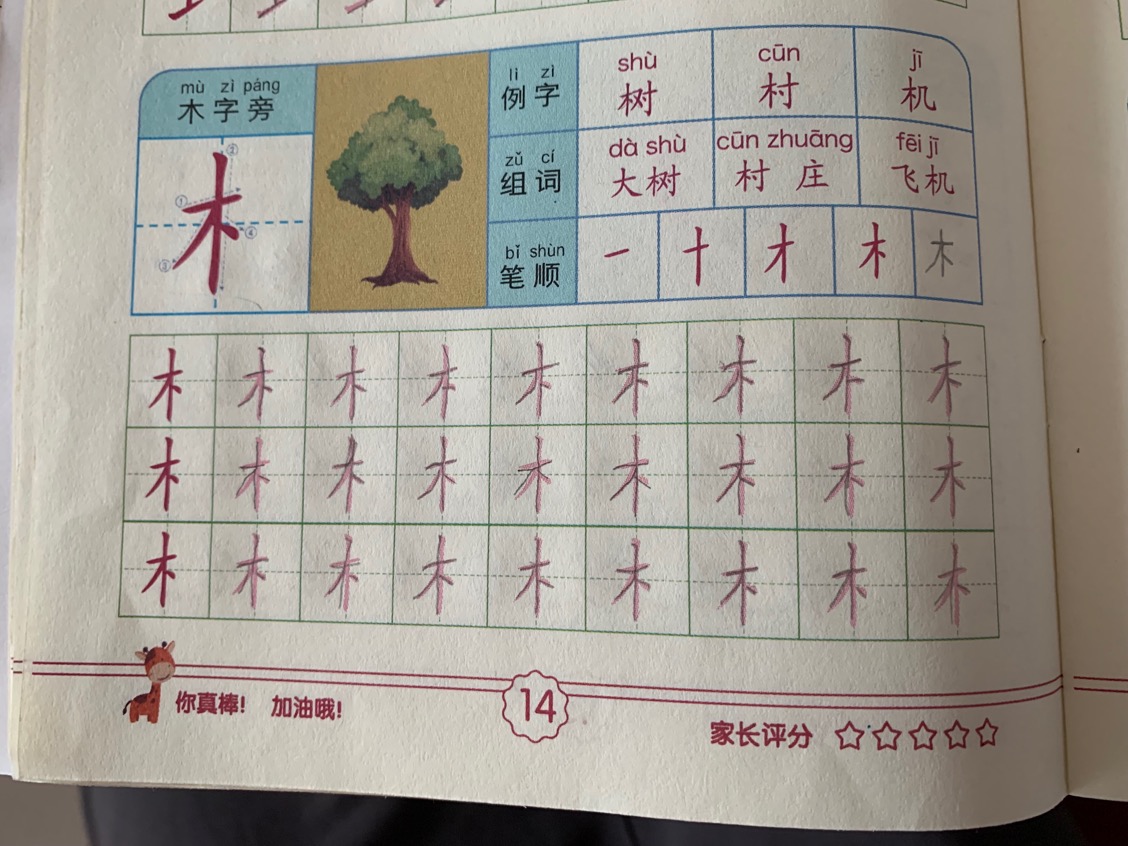 mù zì páng
木字旁
② ① ④ ③
lì zì
例字
shù cūn jī
树 村 机
zǔ cí
组词
dà shù cūn zhuāng fēi jī
大树 村庄 飞机
bǐ shùn
笔顺
一 十 才 木 木
木 木 木 木 木 木 木 木 木
木 木 木 木 木 木 木 木 木
木 木 木 木 木 木 木 木 木
你真棒! 加油哦!
14
家长评分